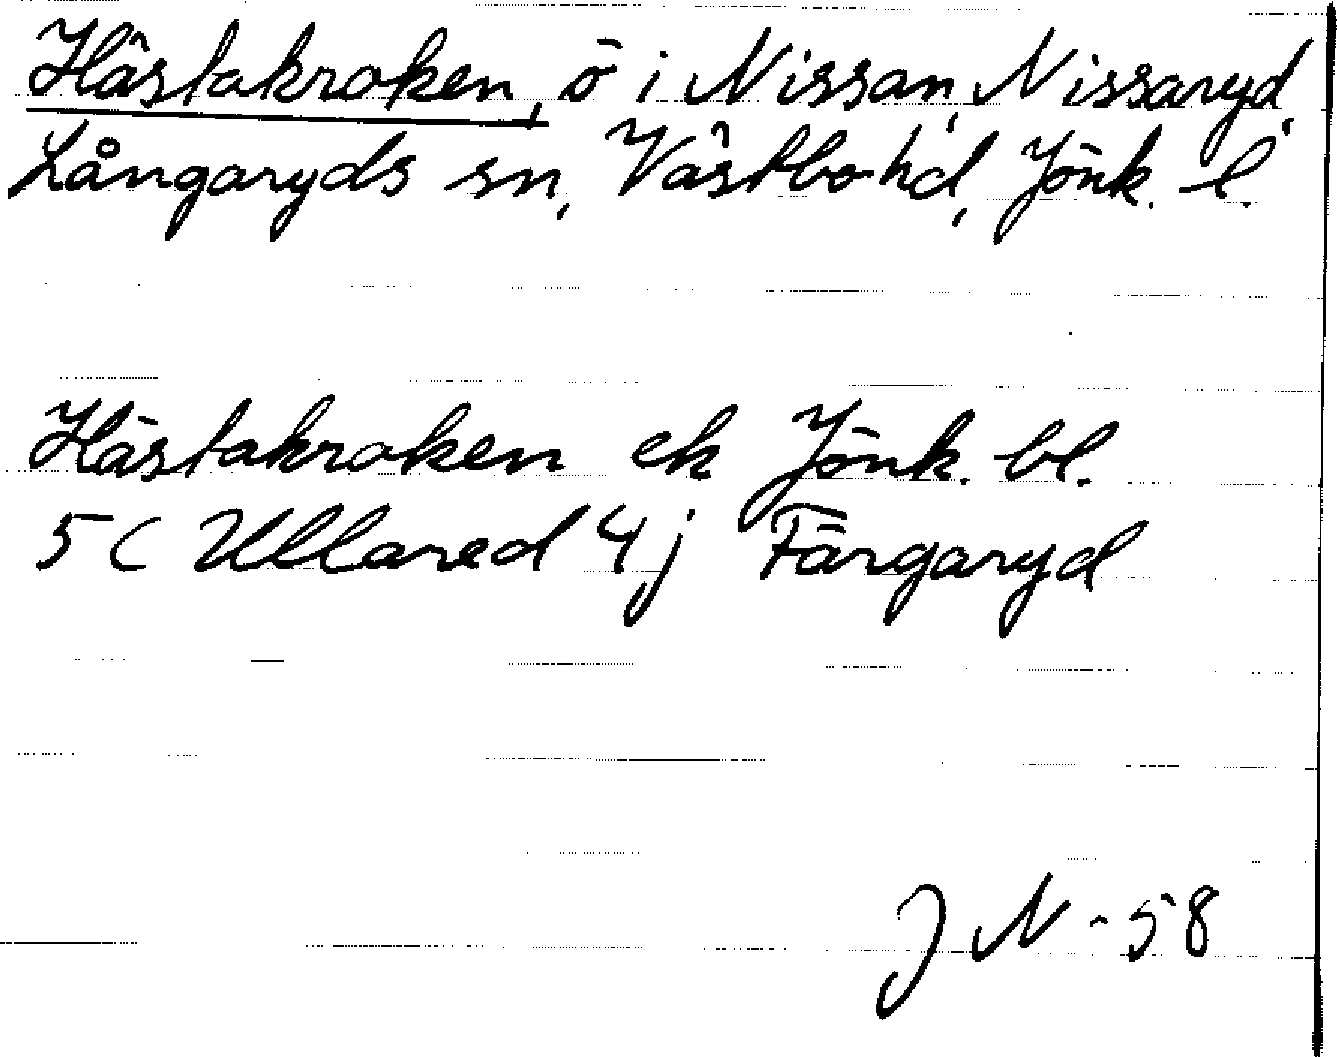 Hästakroken, ö i Nissan, Nissaryd,
Långaryds sn, Västbo hd, Jönk. l.
Hästakroken ek Jönk. bl.
5 C Ullared 4 j Färgaryd
J N -58